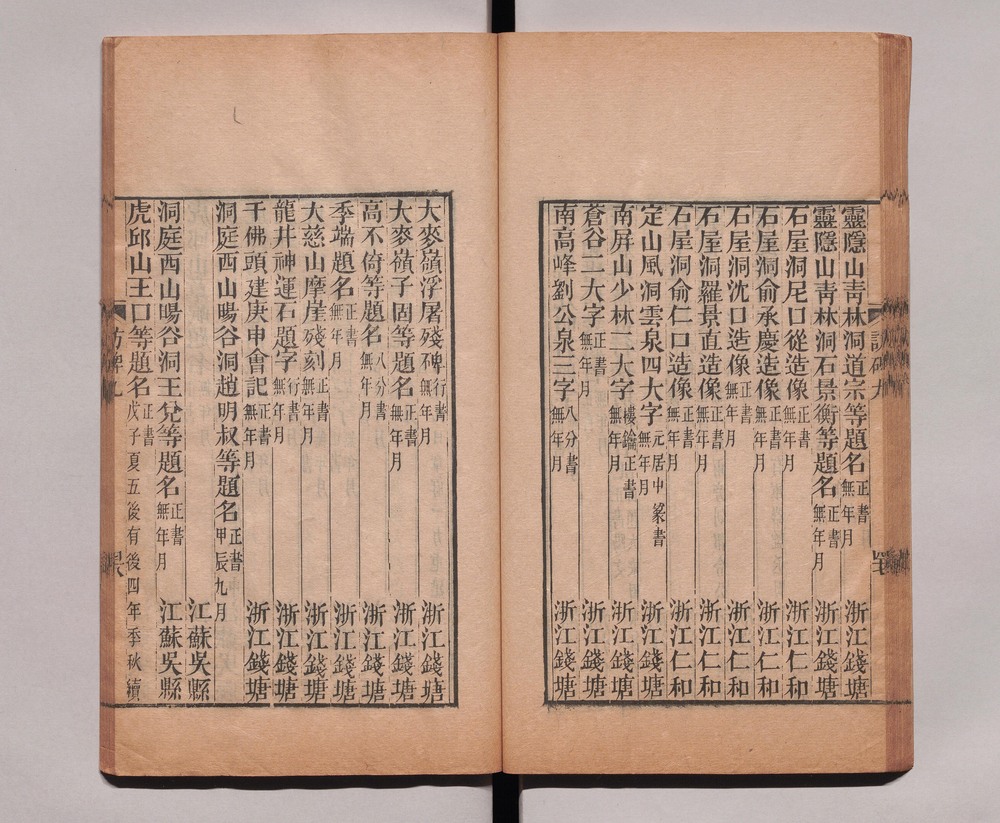 靈隱山青林洞道宗等題名 正書 無年月 浙江錢塘
靈隱山青林洞石景衡等題名 正書 無年月 浙江錢塘
石屋洞尼口從造像 正書 無年月 浙江仁和
石屋洞俞承慶造像 正書 無年月 浙江仁和
石屋洞沈口造像 正書 無年月 浙江仁和
石屋洞羅景直造像 正書 無年月 浙江仁和
石屋洞俞仁口造像 正書 無年月 浙江仁和
定山風洞雲泉四大字 元居中篆書 無年月 浙江錢塘
南屏山少林三大字 樓鑰正書 無年月 浙江錢塘
蒼谷二大字 正書 無年月 浙江錢塘
南高峰劉公泉三字 八分書 無年月 浙江錢塘
大麥嶺浮屠殘碑 行書 無年月 浙江錢塘
大麥嶺子固等題名 正書 無年月 浙江錢塘
高不倚等題名 八分書 無年月 浙江錢塘
季端題名 正書 無年月 浙江錢塘
大慈山摩崖殘刻 正書 無年月 浙江錢塘
龍井神運石題字 行書 無年月 浙江錢塘
千佛頭建庚申會記 正書 無年月 浙江錢塘
洞庭西山暘谷洞趙明叔等題名 正書 甲辰九月
江蘇吳縣
洞庭西山暘谷洞王兌等題名 正書 無年月 江蘇吳縣
虎邱山王口等題名 正書 戊子夏五後有後四年季秋續
訪碑九